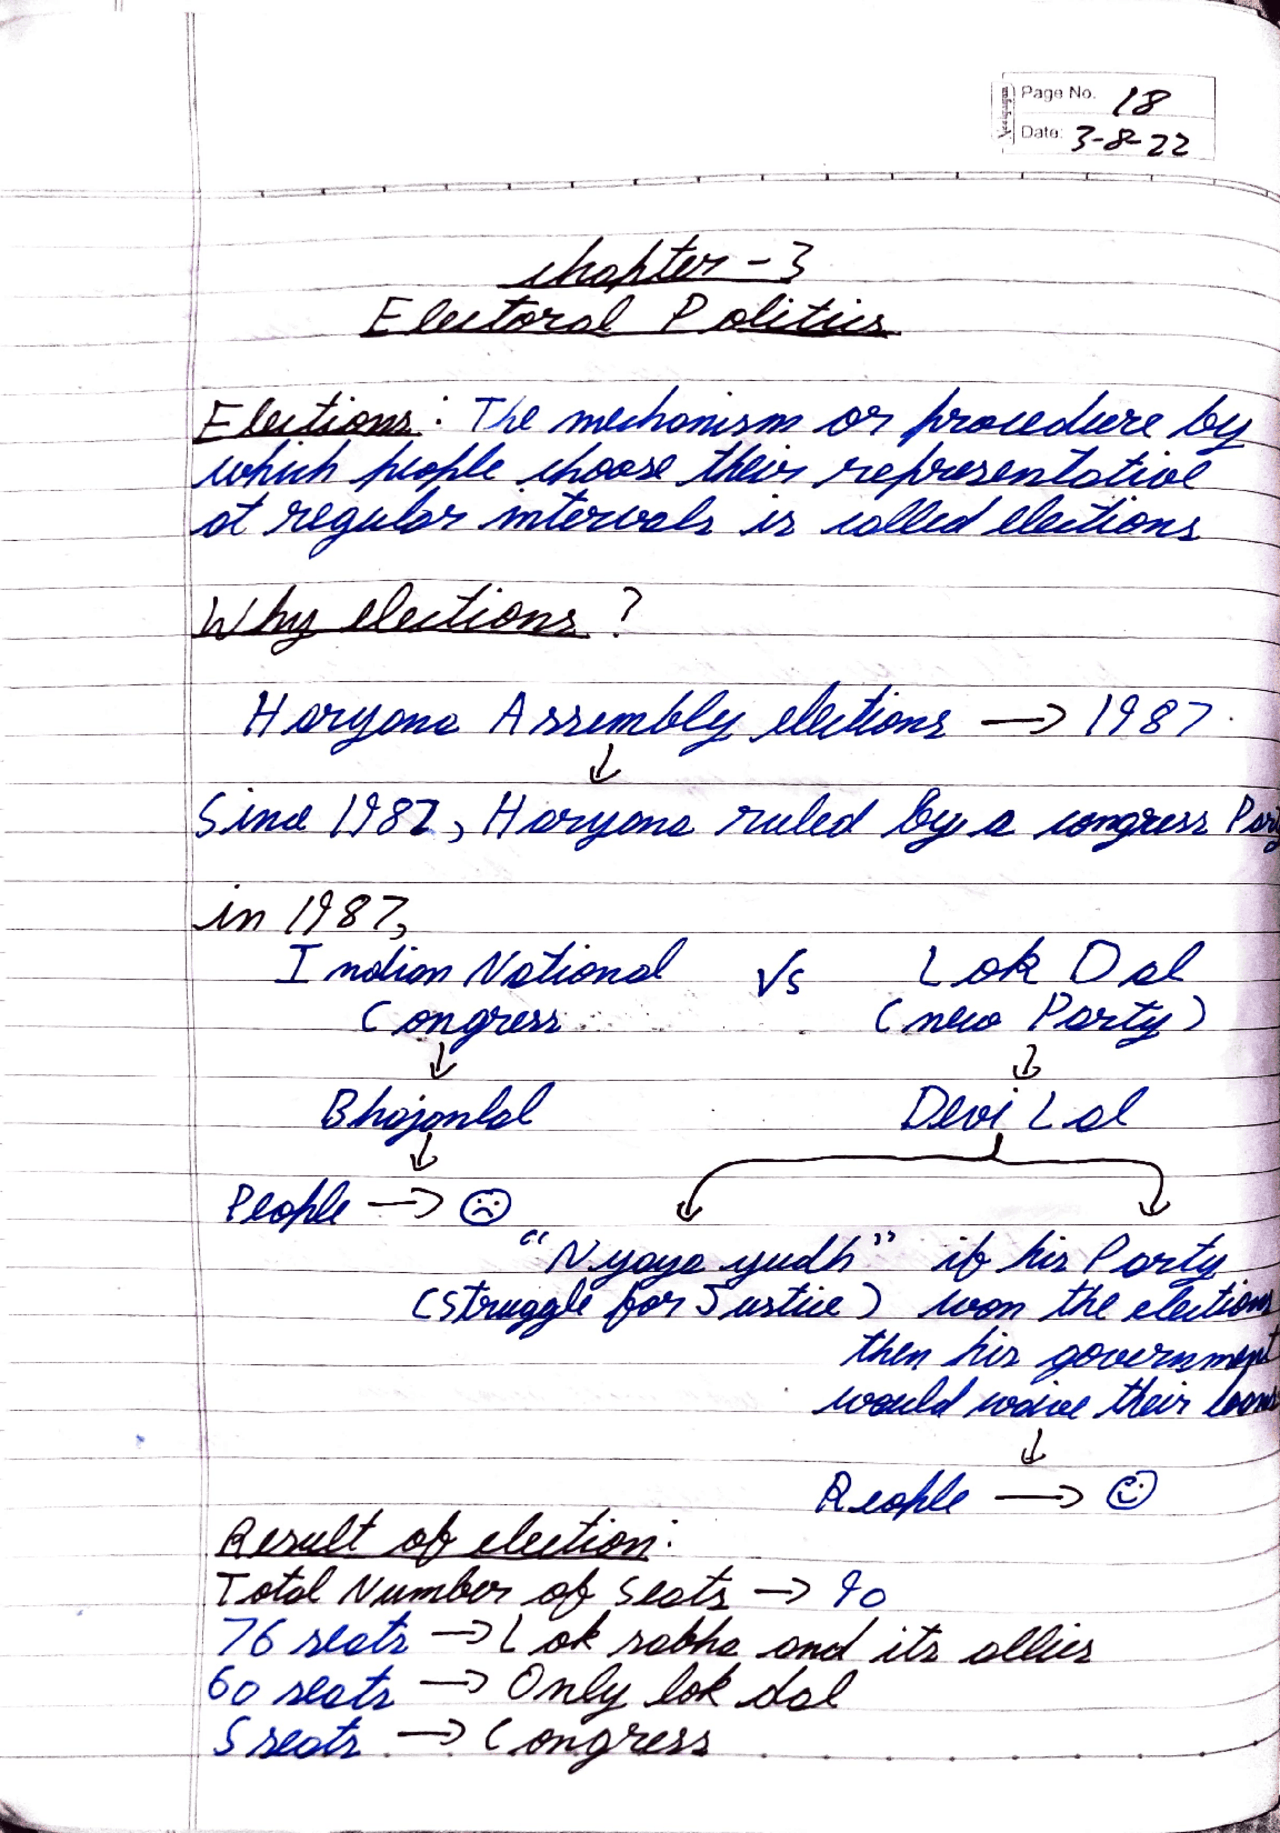 Page No. 18
Date: 3-8-22
Chapter-3
Electoral Politics
Elections: The mechanism or procedure by
which people choose their representative
at regular intervals is called elections
Why elections?
Haryana Assembly elections → 1987
↓
Since 1982, Haryana ruled by a congress
in 1987,
Indian National Vs Lok Dal
Congress (new Party)
↓ ↓
Bhajanlal Devi Lal
↓
People → ☹
"Nyaya yudh" if his Party
(struggle for Justice) won the elections
then his government
would waive their loans
↓
People → ☺
Result of election:
Total Number of seats → 90
76 seats → Lok sabha and its allies
60 seats → Only lok dal
5 seats → Congress